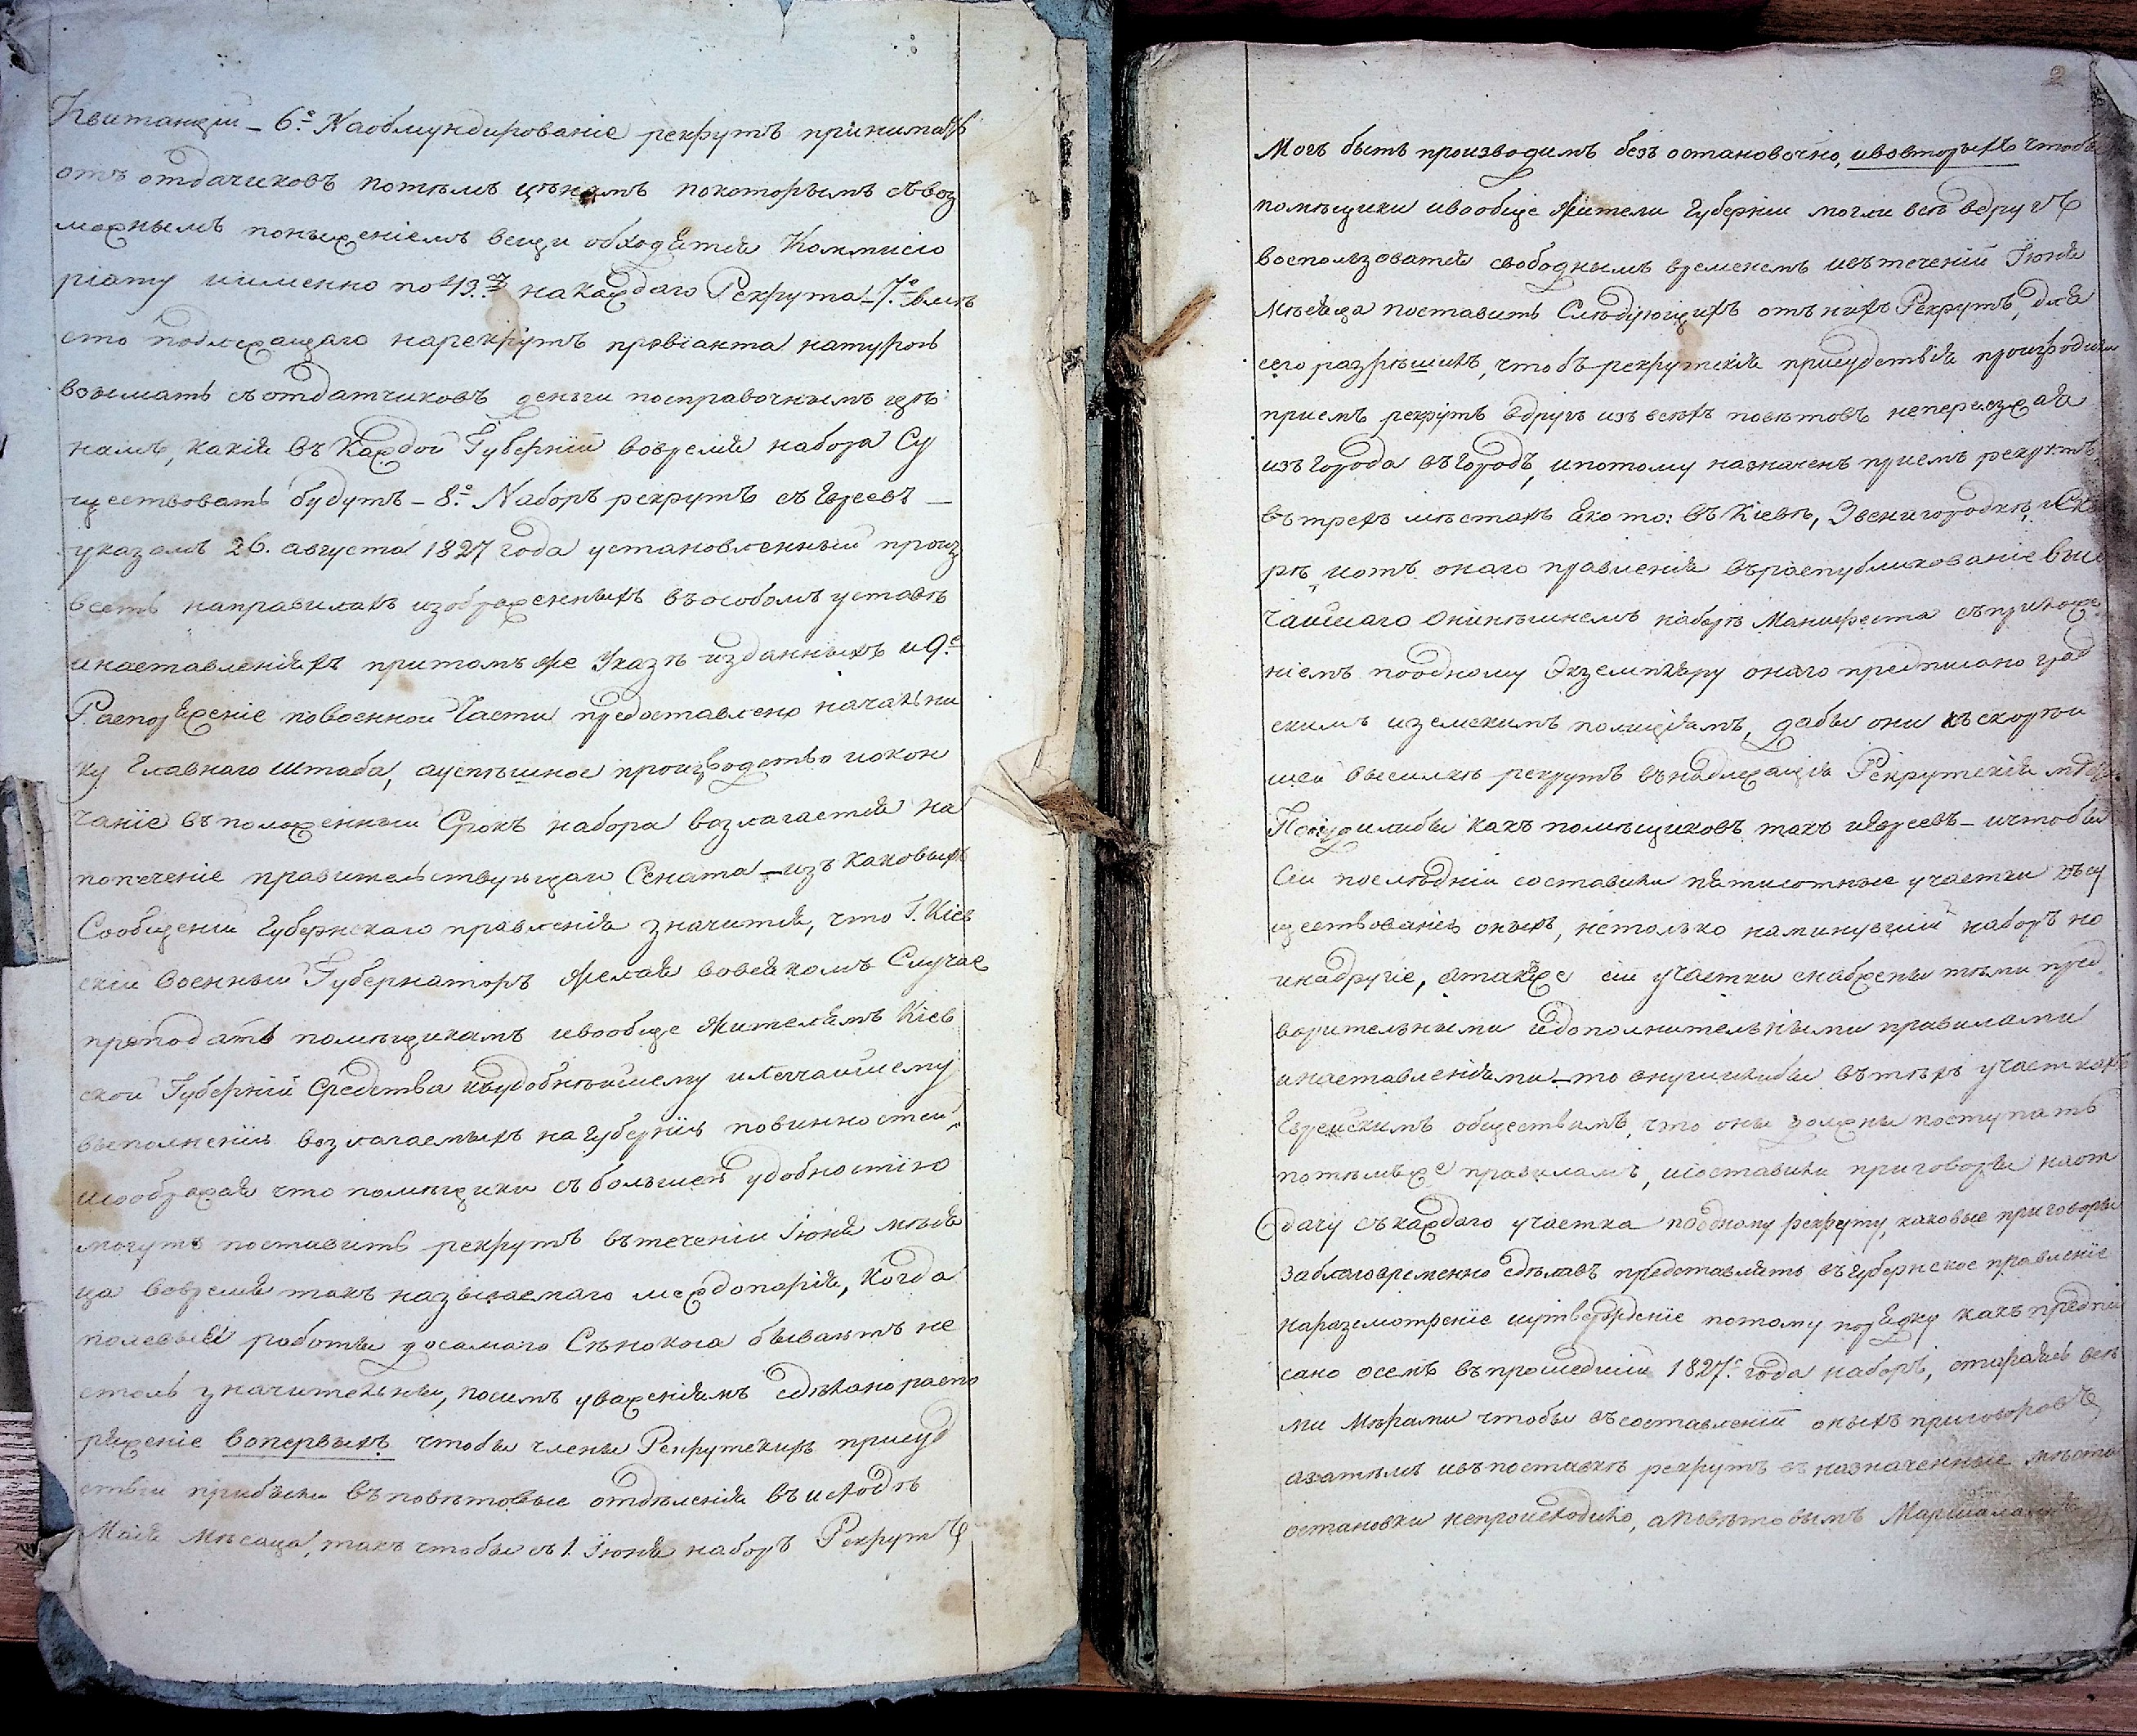 Квитанціи – 6.е Наобмундированіе рекрутъ принимать
отъ отдачиковъ потѣмъ цѣнамъ покоторымъ съвоз
можнымъ пониженіемъ вещи обходятся Коммисо
ріату именно по накаждаго Рекрута – 7.е вмѣ
сто подлежащаго нарекрутъ провіанта натурою
возимать съотдатчиковъ деньги посправочнымъ цѣ
намъ, какія въ Каждой Губерніи вовремя набора Су
ществовать будутъ – 8.е Наборъ рекрутъ съ Евреевъ –
указомъ 26. августа 1827 года установленный произ
весть направилахъ изображенныхъ въособомъ уставѣ
инаставленіяхъ притомъ же Указѣ изданныхъ и 9.е
Распоряженіе повоенной Части предоставлено начальни
ку Главнаго Штаба, ауспѣшное производство иокон
чаніе въположенный Срокъ набора возлагается на
попеченіе правительствующаго Сената – изъ каковыхъ
Сообщеніи Губернскаго правленія значится, что Г. Кіев
скій Военный Губернаторъ желая вовсякомъ Случае
преподать помѣщикамъ ивообще жителямъ Кіев
ской Губерніи Средства кудобнѣйшему илегчайшему
выполненію возлагаемыхъ нагубернію повинностей,
исображая что помѣщики съ большею удобностію
могутъ поставить рекрутъ вътеченіи Іюня мѣся
ца вовремя такъ называемаго междопарія, Когда
полевыя работы досамаго Сѣнокоса бываютъ не
столь значительны, посимъ уваженіямъ сдѣлано распо
ряженіе вопервыхъ чтобы члены Рекрутскихъ присуд
ствіи прибыли въповѣтовые отдѣленія въисходѣ
Маія Мѣсаца, такъ чтобы съ 1. Іюня наборъ Рекрутъ
2
Могъ быть производимъ безъ остановочно, ивовторыхъ чтобы
помѣщики ивообще Жители Губерніи могли всѣ вдругъ
воспользоватся свободнымъ временемъ ивътеченіи Іюня
мѣсяца поставить Слѣдующихъ отънихъ Рекрутъ, для
сего разрѣшилъ, чтобъ рекрутскія присудствія производили
приемъ рекрутъ вдругъ изъ всѣхъ повѣтовъ непереезжая
изъ города въ Городъ, ипотому назначенъ приемъ рекрутъ
вътрехъ мѣстахъ Якото: въ Кіевѣ, Звенигородкѣ, иСкви
рѣ иотъ онаго правленія въраспубликованіе высо
чайшаго Онинѣшнемъ наборѣ Манифеста съприложе
ніемъ поодному Экземпляру онаго предписано град
скимъ иземскимъ полиціямъ, дабы они къскорѣй
шей высилкѣ рекрутъ въ надлежащія Рекрутскія мѣста
Понудилибы какъ помѣщиковъ такъ иЕвреевъ – ичтобы
Сіи послѣдніи составили пятисотные участки късу
ществованію оныхъ, нетолько наминувшій наборъ но
инадругіе, атакже сіи участки снабжены тѣми пред
варительными идополнительными правилами
инаставленіями – то внушилибы вътѣхъ участкахъ
Еврейскимъ обществамъ, что оны должны поступать
потѣмъже правиламъ, исоставили приговоры наот
дачу съкаждаго участка поодному рекруту, каковые приговоры
заблаговременно сдѣлавъ представлять въ Губернское правленіе
наразсмотреніе иутвержденіе потому порядку какъ предпи
сано осемъ въпрошедшій 1827.г года наборъ, стараясь всѣ
ми мѣрами чтобы въсоставленіи оныхъ приговоровъ,
азатѣмъ ивъпоставкѣ рекрутъ въ назначенные мѣста
остановки непроисходило, аПовѣтовымъ Маршаламъ